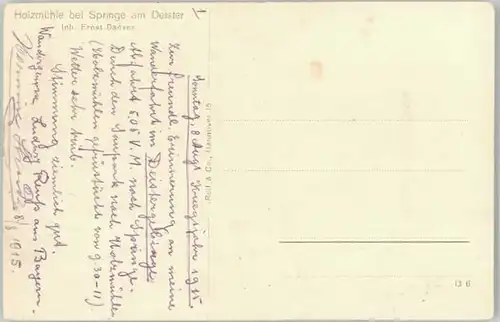 Holzmühle bei Springe am Deister
Inh. Ernst
1
Sonntag, 8 Aug. Kriegsjahr 1915
Zur freundl. Erinnerung an meine
Wanderfahrt im Deistergebirge
Abfahrt 5.05 V.M. nach Springe.
Durch den Saupark nach Holzmühle
(Holzmühlen gefrühstückt von 9.30-11)
Wetter sehr trüb.
Stimmung ziemlich gut.
Wandergenosse Ludwig aus Bayern.
8/8 1915.
13 6